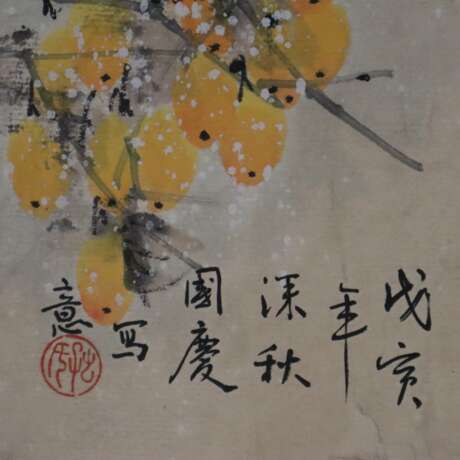 戊寅
年
深秋
國慶
写
意